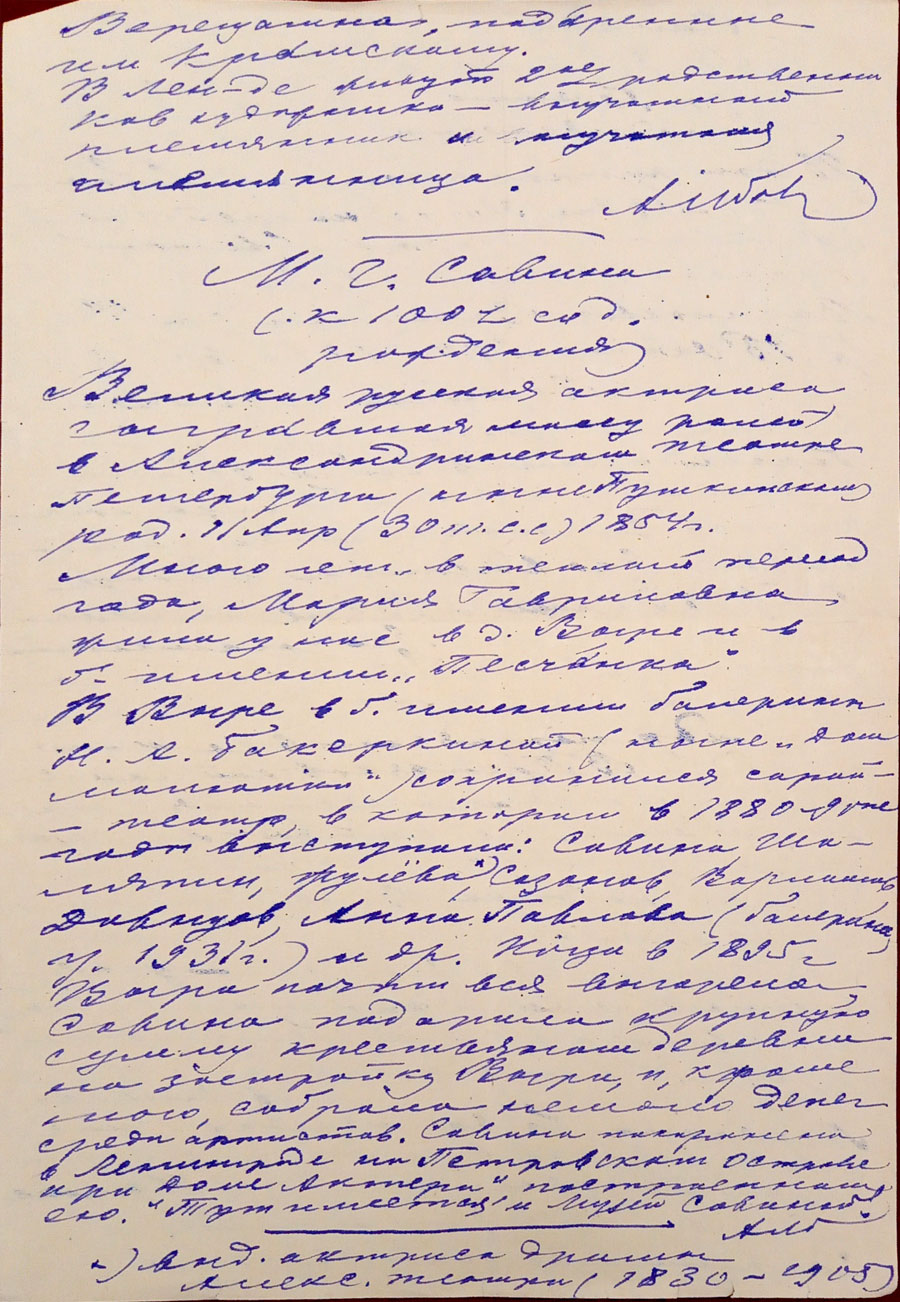 Верещагина, подаренные
им Крамскому.
В Лен-де живут 2ое родственни
ков художника – внучатный
племянник и внучатная
племянница.
М. Г. Савина
(к 100 л со д.
рождения)
Великая русская актриса
сыгравшая массу ролей
в Александринском театре
Петербурга (ныне Пушкинском)
род. 11 Апр (30 м. с.с) 1854 г.
Много лет, в теплый период
года, Мария Гавриловна
жила у нас в д. Выре и в
б. имении „Песчанка".
В Выре в б. имении балерины
М. А. Бакеркиной (ныне „Дом
малютки") сохранился сарай-
– театр, в котором в 1880-9 оые
годы выступали: Савина, Ша-
ляпин, Жулёва*), Сазонов, Варламов
Давыдов, Анна Павлова (балерина
у. 1931 г.) и др. Когда в 1895 г
Выра почти вся выгорела,
Савина подарила крупную
сумму крестьянам деревни
на застройку Выры, и, кроме
того, собрала немало денег
среди артистов. Савина похоронена
в Ленинграде на Петровском острове
при „Доме Актера" построенном
ею. Тут имеется и музей Савиной.
АЛб
*) выд. актриса драмы
Алекс. театра (1830 – 1905)